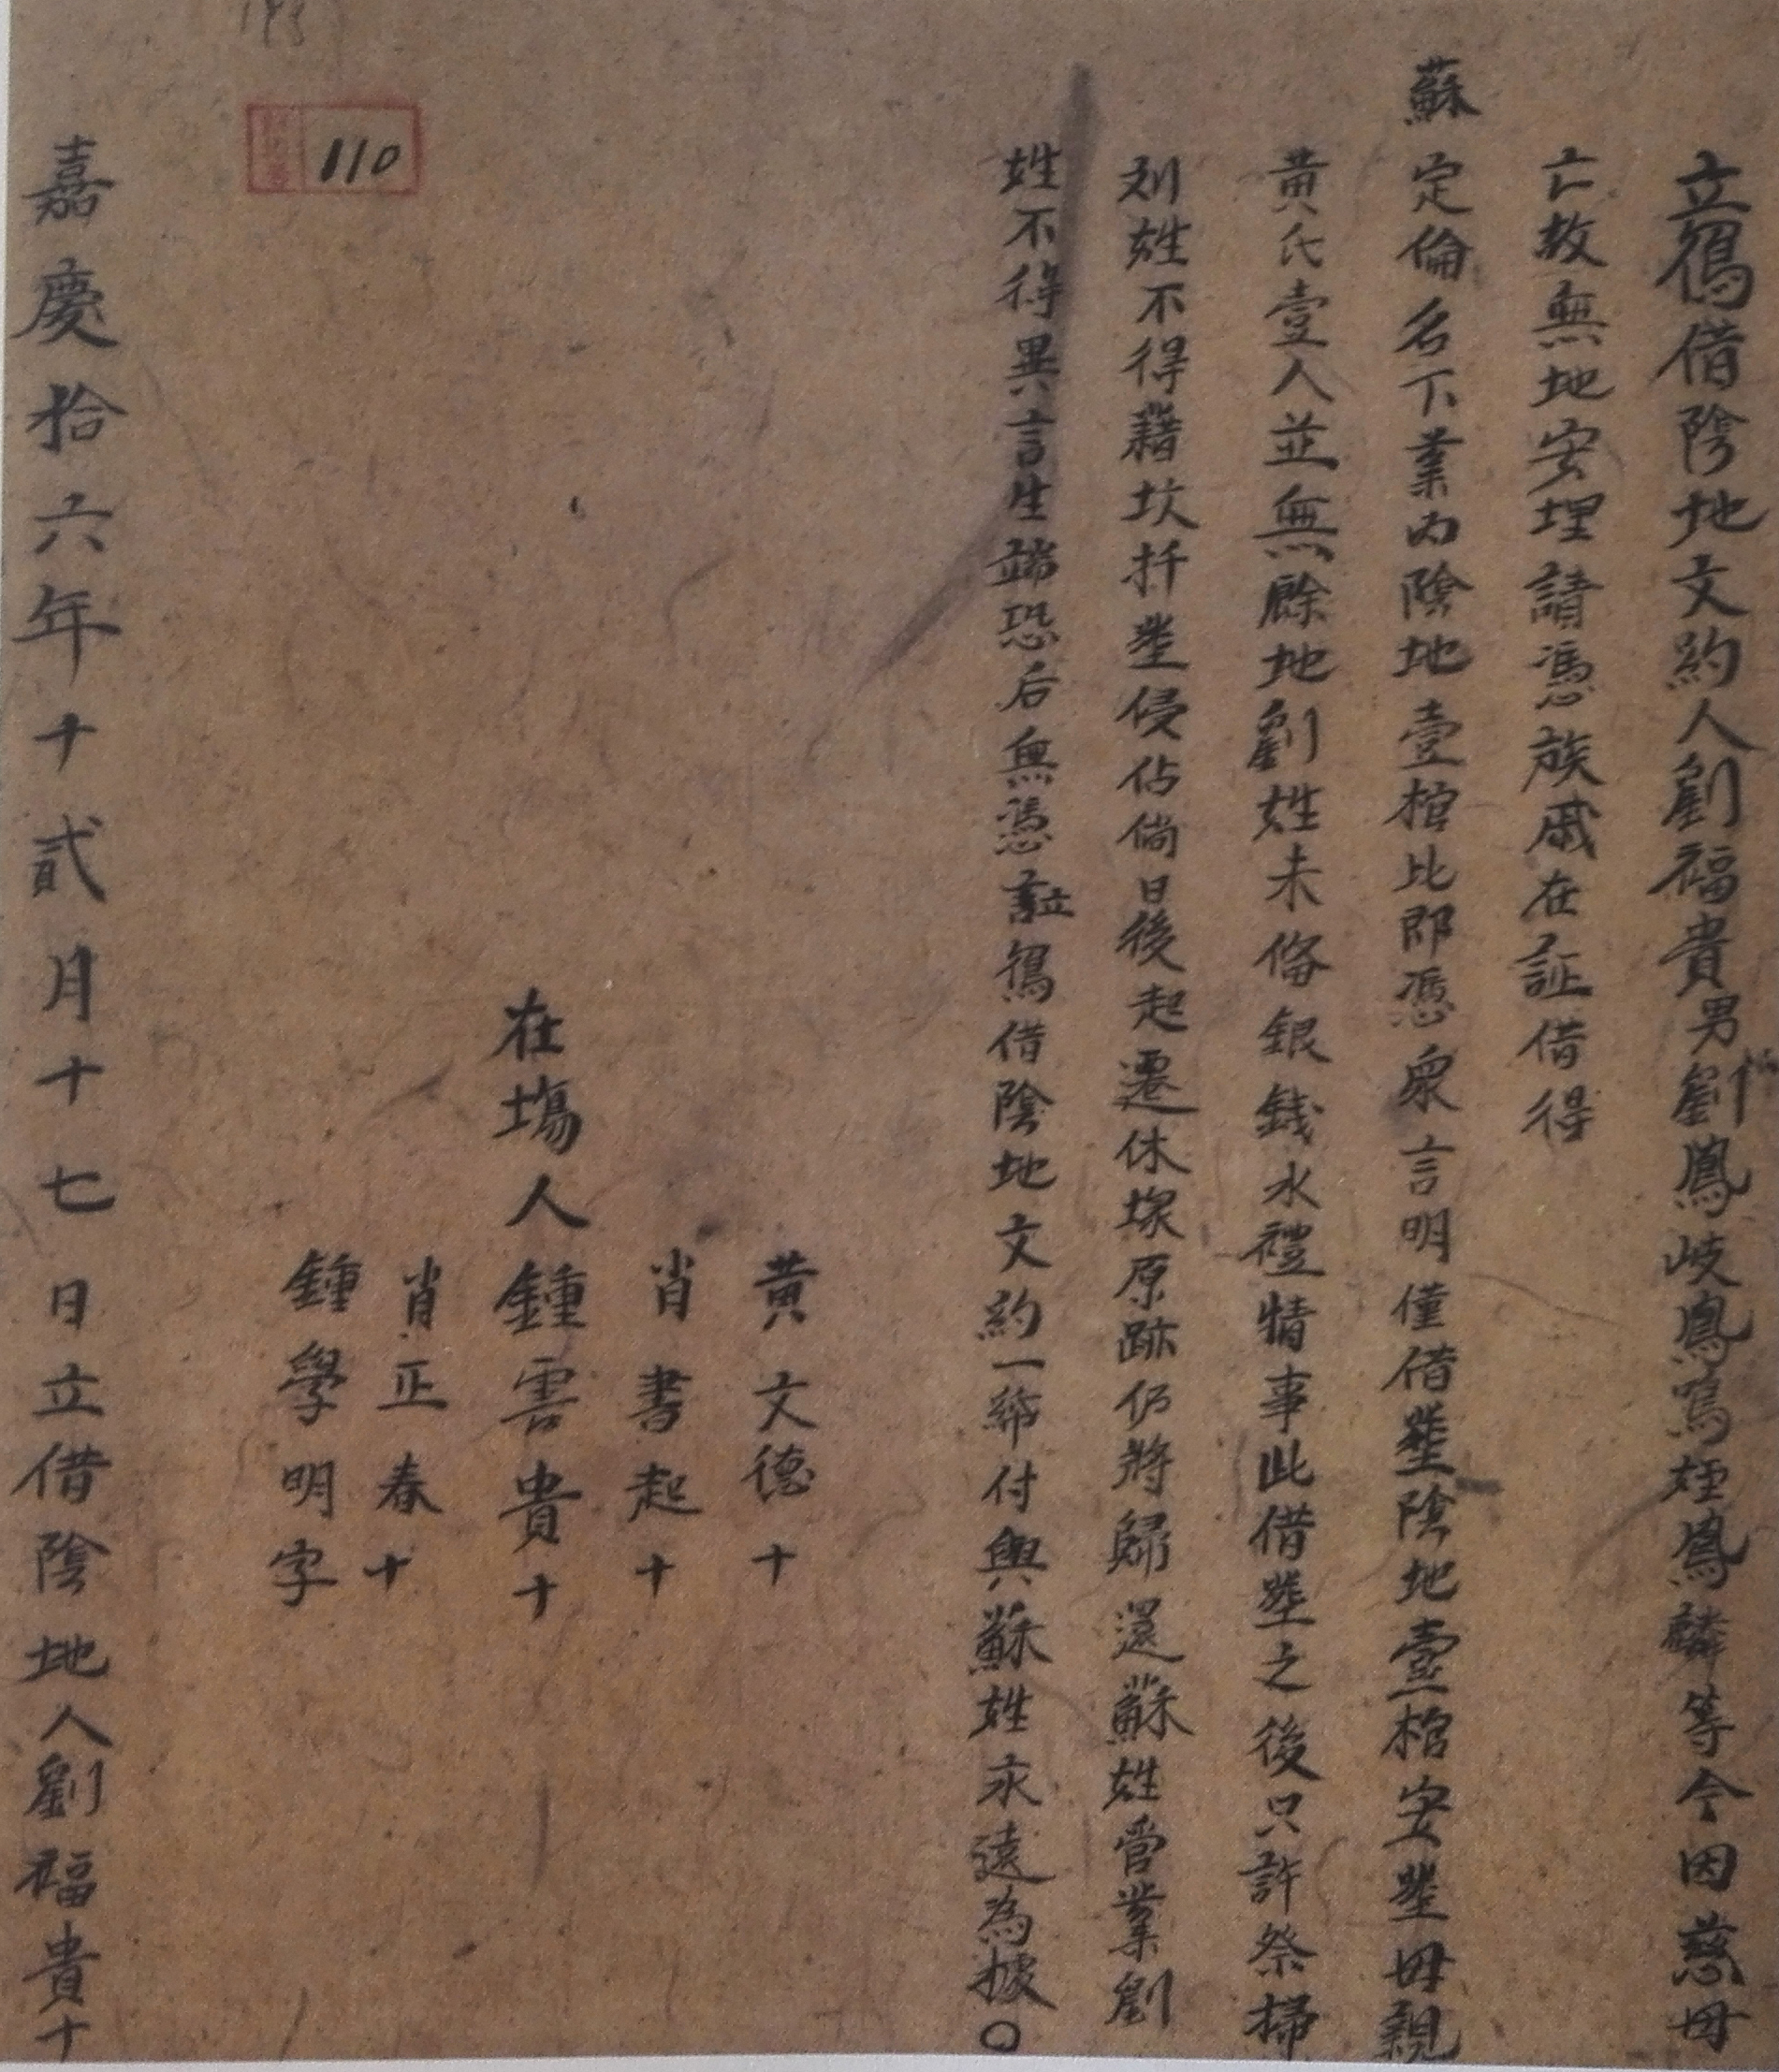 立㑄借陰地文約人劉福貴男劉鳳岐鳳鳴姪鳳麟等今因慈母
亡故無地安埋請憑族戚在証借得
蘇定倫名下業内陰地壹棺比即憑衆言明僅借塟陰地壹棺安塟母親
黄氏壹人並無餘地劉姓未俻銀錢水禮情事此借塟之後只許祭掃
刘姓不得藉坟扦塟侵佔倘日後起遷休塚原跡仍將歸還蘇姓管業劉
姓不得異言生端恐后無憑証借陰地文約一紙付與蘇姓永遠為據〇
黄文德十
肖書起十
在塲人鍾雲貴十
肖正春十
鍾學明字
110
嘉慶拾六年十貳月十七日立借陰地人劉福貴十